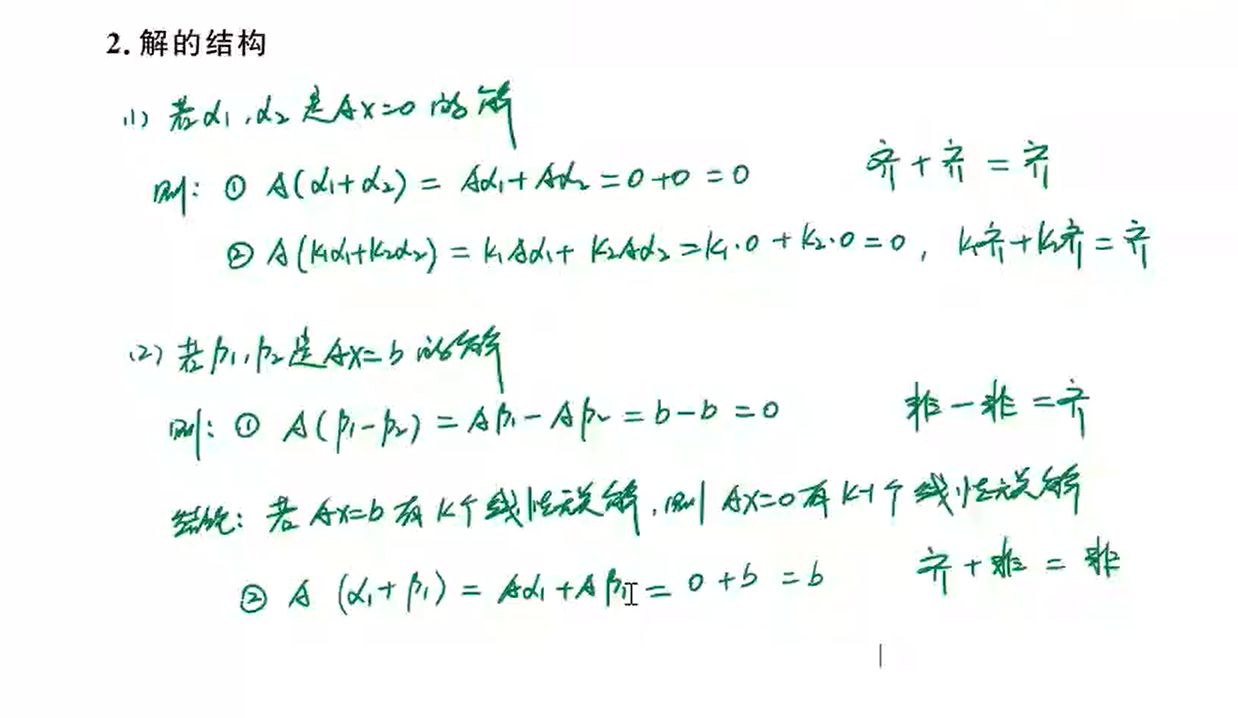 2. 解的结构
(1) 若α1,α2是Ax=0的解
则: ① A(α1+α2) = Aα1+Aα2=0+0=0 齐+齐=齐
② A(k1α1+k2α2) = k1Aα1+ k2Aα2=k1·0+k2·0=0, k1齐+k2齐=齐
(2) 若β1,β2是Ax=b的解
则: ① A(β1-β2) = Aβ1-Aβ2=b-b=0 非-非=齐
结论: 若Ax=b有k个线性无关解,则Ax=0有k-1个线性无关解
② A (α1+β1) = Aα1+Aβ1= 0+b =b 齐+非=非